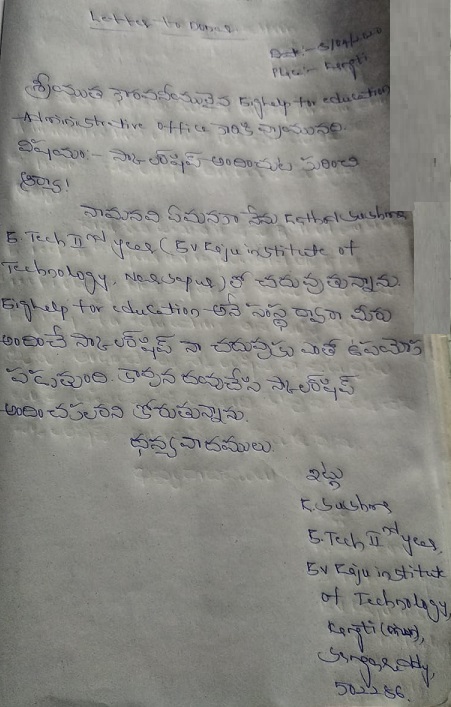 Letter to Donor
Date:- 5/09/2020
Place:- Kangti
శ్రీయుత గౌరవనీయులైన Bighelp for education
Administrative office గారికి వ్రాయునది.
విషయం:- స్కాలర్‌షిప్ అందించుట గురించి
ఆర్యా!
నామనవి ఏమనగా నేను
B.Tech IInd year (SV Raju institute of
Technology, Narsapur) లో చదువుతున్నాను.
Bighelp for education అనే సంస్థ ద్వారా మీరు
అందించే స్కాలర్‌షిప్ నా చదువుకు ఎంతో ఉపయోగ
పడుతుంది. కావున దయచేసి స్కాలర్‌షిప్
అందించగలరని కోరుతున్నాను.
ధన్యవాదములు
ఇట్లు
K.
B.Tech IInd year,
SV Raju institute
of Technology,
Kangti
Sangareddy,
502286.